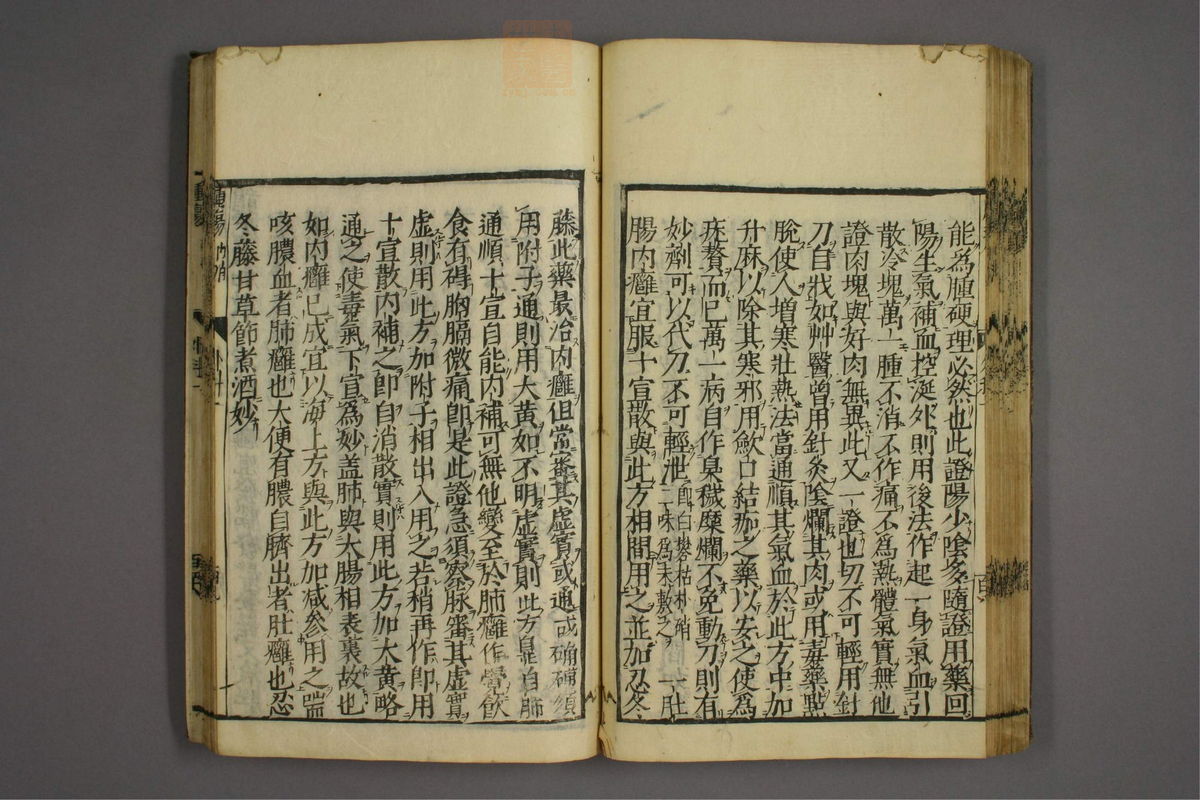 能為腫硬理必然也此證陽少陰多隨證用藥回
陽生氣補血控涎外則用後法作起一身氣血引
散冷塊萬一腫不消不作痛不為熱體氣實無他
證肉塊與好肉無異此又一證也切不可輕用針
刀自戕如艸醫曾用針灸陰爛其肉或用毒藥點
脫使人增寒壯熱法當通順其氣血於此方中加
升麻以除其寒邪用斂口結痂之藥以安之使為
疣贅而已萬一病自作臭穢糜爛不免動刀則有
妙劑可以代刀不可輕泄即白礬枯朴硝二味為末敷之一肚
腸內癰宜服十宣散與此方相間用之並加忍冬
藤此藥最治內癰但當審其虛實或通或補須
用附子通則用大黃如不明虛實則此方是自肺
通順十宣自能內補可無他變至於肺癰作覺飲
食有碍胸膈微痛即是此證急須察脉審其虛實
虛則用此方加附子相出入用之若稍再作即用
十宣散內補之即自消散實則用此方加大黃略
通之使毒氣下宣為妙盖肺與大腸相表裏故也
如內癰已成宜以海上方與此方加减參用之
咳膿血者肺癰也大便有膿自臍出者肚癰也忍
冬藤甘草節煮酒妙